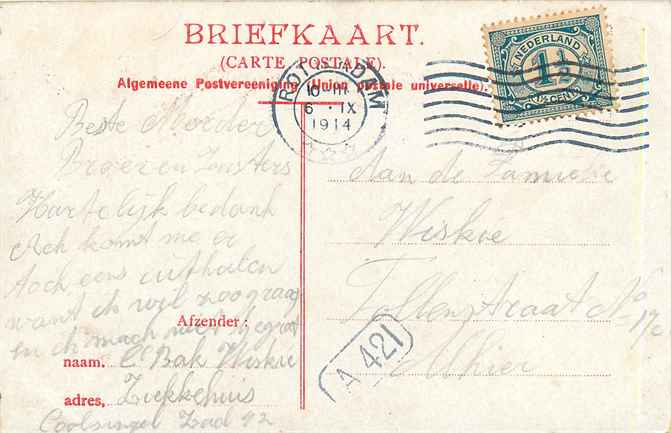 BRIEFKAART.
(CARTE POSTALE).
Algemeene Postvereeniging (Union postale universelle).
NEDERLAND
1½
CENT
ROTTERDAM
6 · IX
1914
Beste Moeder
Broer en Zusters
Hartelijk bedank
Ach komt me er
toch eens uithalen
want ik wil zoo graag
en ik mach niet
Afzender:
naam. C Bak Wiskie
adres, Ziekkehuis
Coolsingel Zaal 42
Aan de Familie
Wiskie
Tollenstraat No
Alhier
A 421